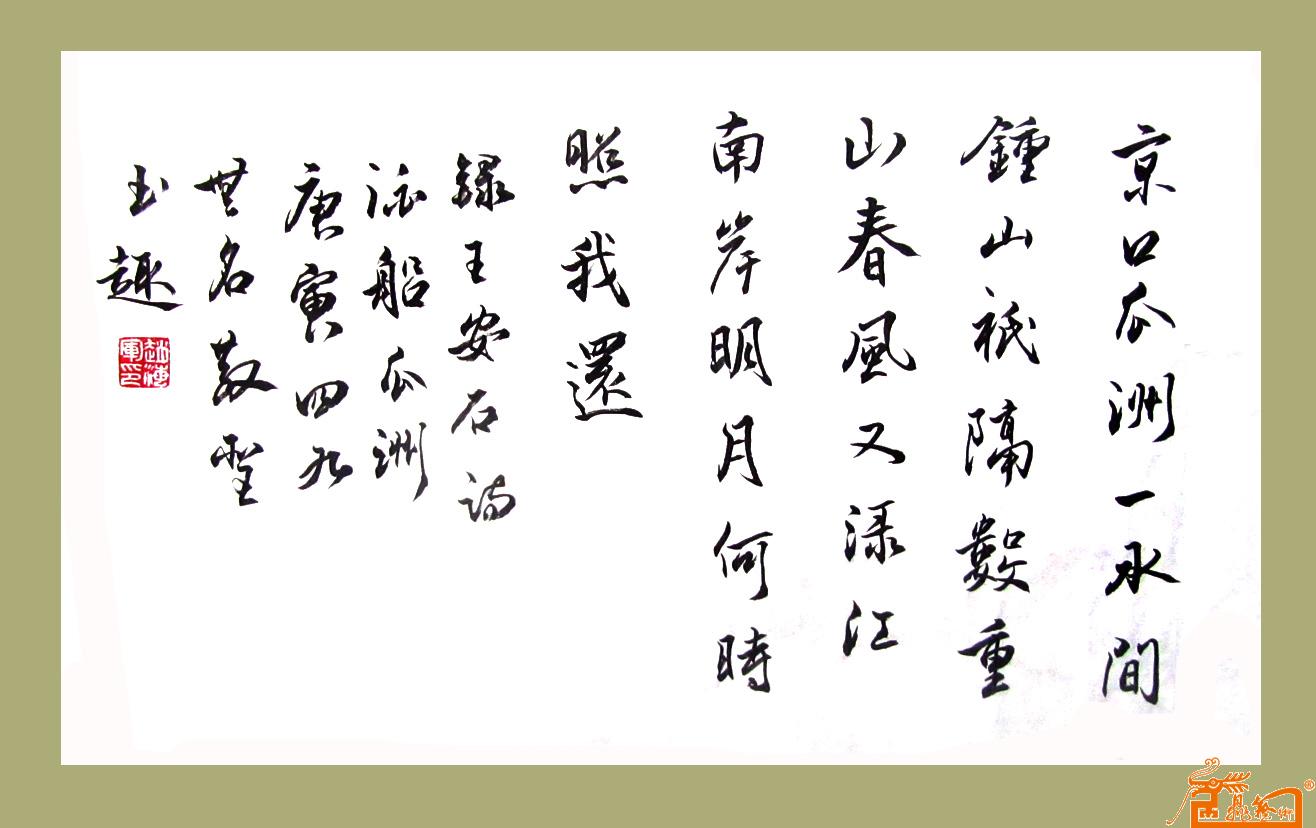 京口瓜洲一水間
鍾山祇隔數重
山春風又渌江
南岸明月何時
照我還
録王安石詩
泊船瓜洲
庚寅四九
無名
玉趣
趙海軍印